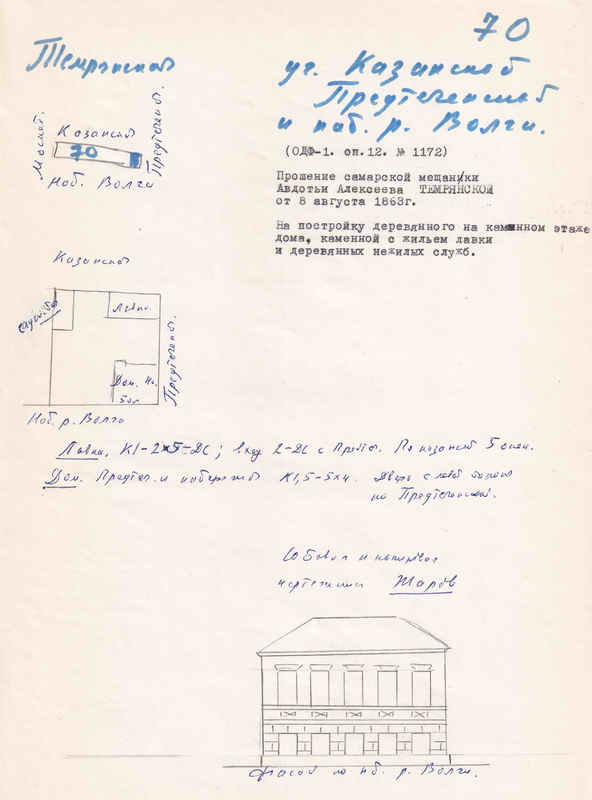 70
Темрянской
уг. Казанской
Предтеченской
и наб. р. Волги.
Москат.
Казанской
Предтеченс.
70
Наб. Волги
(ОДФ-1. оп.12. № 1172)
Прошение самарской мещанки
Авдотьи Алексеева ТЕМРЯНСКОЙ
от 8 августа 1863г.
На постройку деревянного на каменном этаже
дома, каменной с жильем лавки
и деревянных нежилых служб.
Казанской
службы
Лавки.
Предтеченс.
Дом. Но.
Наб. р. Волги
Лавки, К1-2х5-ДС; вход 2-ДС с Предтеч. По казанской 5 окон.
Дом. Предтеч. и набережной К1,5-5х4. Дверь с левой стороны
на Предтеченской.
чертежник Жаров
Фасад по наб. р. Волги.